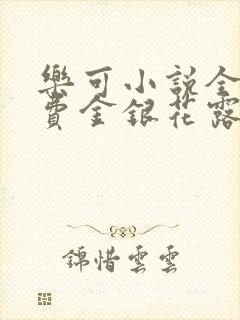 樂可小說全
費金銀花露
錦惜雲雲